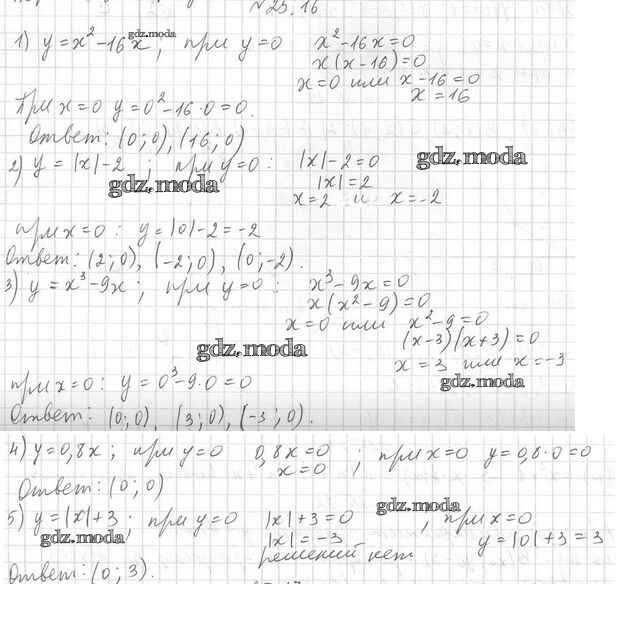 № 25.16
1) y = x² - 16x, при y = 0 x² - 16x = 0
x(x - 16) = 0
x = 0 или x - 16 = 0
x = 16
При x = 0 y = 0² - 16·0 = 0.
Ответ: (0; 0), (16; 0)
2) y = |x| - 2; при y = 0: |x| - 2 = 0
|x| = 2
x = 2 и x = -2
при x = 0: y = |0| - 2 = -2
Ответ: (2; 0), (-2; 0), (0; -2).
3) y = x³ - 9x; при y = 0: x³ - 9x = 0
x(x² - 9) = 0
x = 0 или x² - 9 = 0
(x - 3)(x + 3) = 0
x = 3 или x = -3
при x = 0: y = 0³ - 9·0 = 0
Ответ: (0; 0), (3; 0), (-3; 0).
4) y = 0,8x; при y = 0 0,8x = 0; при x = 0 y = 0,8·0 = 0
x = 0
Ответ: (0; 0)
5) y = |x| + 3; при y = 0 |x| + 3 = 0, при x = 0
|x| = -3 y = |0| + 3 = 3
решений нет
Ответ: (0; 3).
gdz.moda
gdz.moda
gdz.moda
gdz.moda
gdz.moda
gdz.moda
gdz.moda